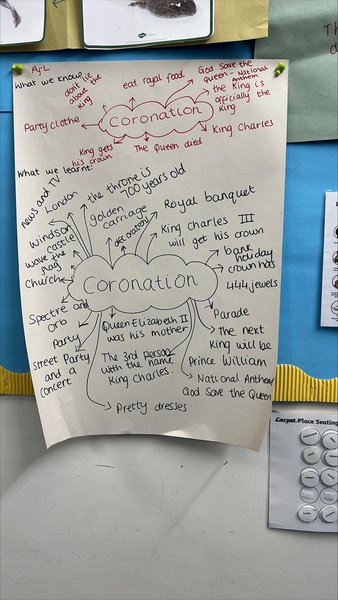 AfL
What we know:
don't lie
about the
king
eat royal food
God save the
queen - National
Anthem
the King is
officially the
King
Party clothe
coronation
King Charles
King gets
his crown
The Queen died
What we learnt:
news and TV
London
the throne is
700 years old
golden
carriage
decorations
Royal banquet
King Charles III
will get his crown
Windsor
castle
wave the
flag
church
bank
holiday
crown has
444 jewels
Coronation
Spectre and
orb
Party
Street Party
and a
concert
Queen Elizabeth II
was his mother
The 3rd person
with the name
King Charles.
Parade
The next
King will be
Prince William
National Anthem
God Save the Queen
Pretty dresses
Carpet Place Seating